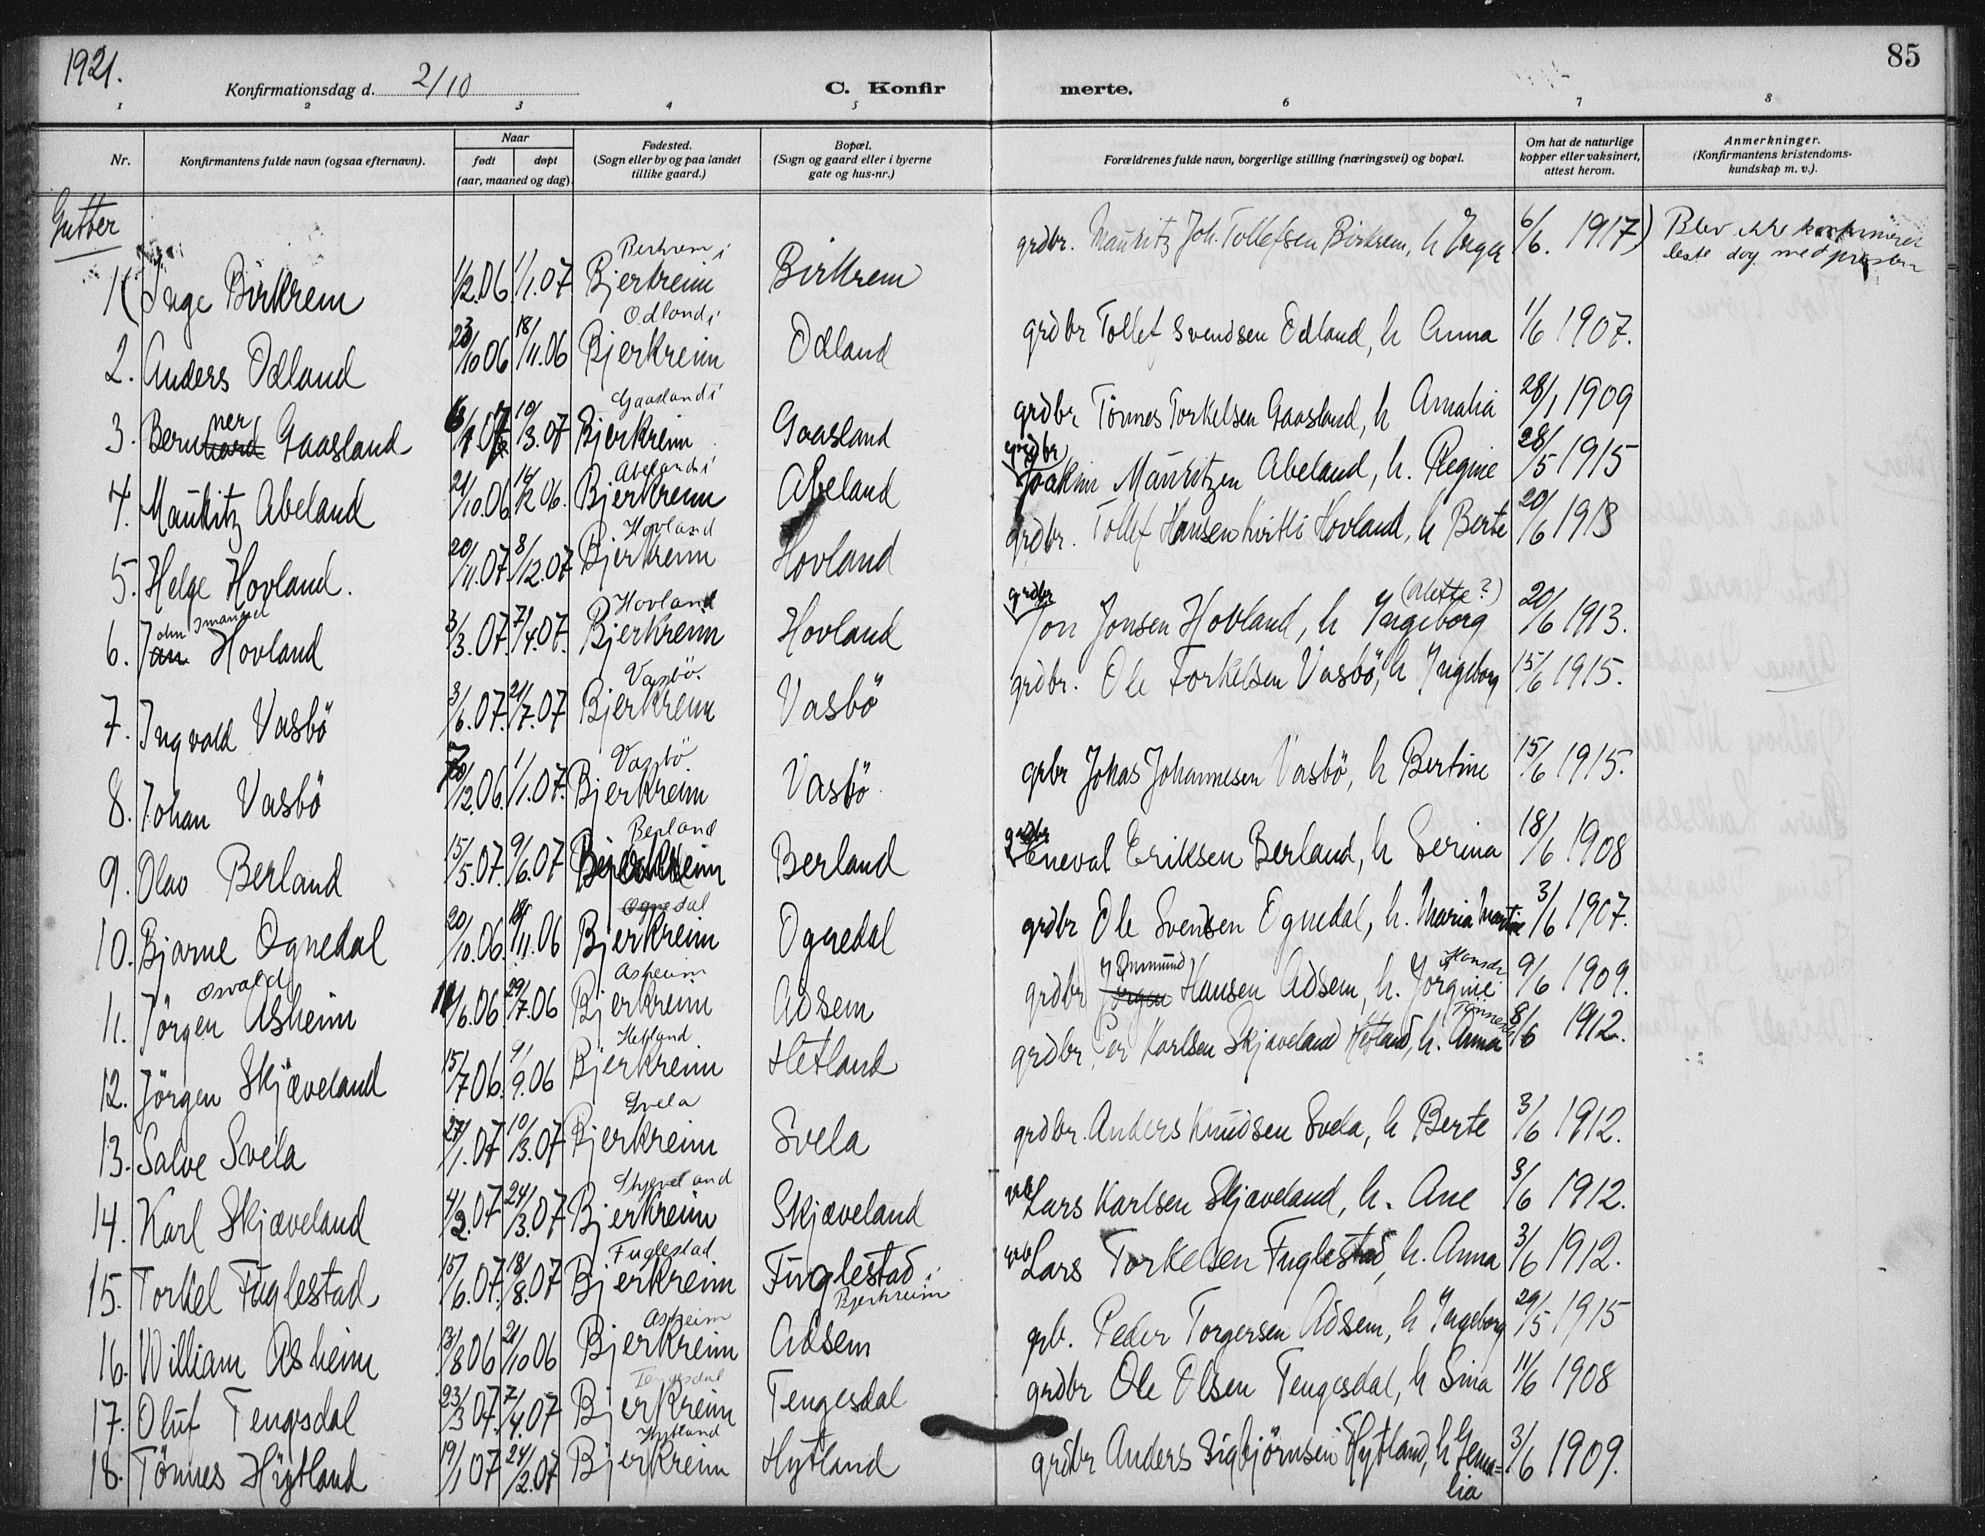 1921.
85
Konfirmationsdag d. 2/10
C. Konfirmerte.
1 2 3 4 5 6 7 8
Nr.
Konfirmantens fulde navn (ogsaa efternavn).
Naar
født døpt
(aar, maaned og dag).
Fødested.
(Sogn eller by og paa landet
tillike gaard.)
Bopæl.
(Sogn og gaard eller i byerne
gate og hus-nr.)
Forældrenes fulde navn, borgerlige stilling (næringsvei) og bopæl.
Om hat de naturlige
kopper eller vaksinert,
attest herom.
Anmerkninger.
(Konfirmantens kristendoms-
kundskap m. v.).
Gutter
1( Inge Birkrem 1/2.06 1/1.07 Birkrem i Bjerkreim Birkrem grdbr. Mauritz Joh. Tollefsen Birkrem, h Inger 6/6. 1917) Blev ikke konfirmeret
leste dog med presten
2. Anders Odland 23/10 06 18/11.06 Odland i Bjerkreim Odland grdbr Tollef Svendsen Odland, h Anna 1/6 1907.
3. Bernhard ner Gaasland 07 10/3.07 Gaasland i Bjerkreim Gaasland grdbr Tønnes Torkelsen Gaasland, h Amalia 28/1 1909
4. Mauritz Abeland 21/10.06 /12 06. Abeland i Bjerkreim Abeland grdbr Joakim Mauritzen Abeland, h. Regine 28/5 1915
5. Helge Hovland. 20/11.07 8/12.07 Hovland Bjerkreim Hovland grdbr. Tollef Hansen Hovland, h Berte 20/6 1913
6. Jan ohn Imanuel Hovland 3/3.07. 7/4.07. Hovland Bjerkreim Hovland grdbr Jon Jonsen Hovland, h Ingeborg (Alette?) 20/6 1913.
7. Ingvald Vasbö 3/6.07. 21/7.07 Vasbö. Bjerkreim Vasbö grdbr. Ole Torkelsen Vasbö, h Ingeborg 15/6 1915.
8. Johan Vasbö /12.06. 1/1.07. Vasbö Bjerkreim Vasbö grbr Jonas Johannesen Vasbö, h Bertine 15/6 1915.
9. Olav Berland 15/5.07. 9/6.07 Berland Bjerkreim Berland grdbr Eneval Eriksen Berland, h Serina 18/6 1908
10. Bjarne Ognedal 20/10.06 18/11.06 Ognedal Bjerkreim Ognedal grdbr Ole Svendsen Ognedal, h. Maria Martine 3/6 1907.
11. Jörgen Osvald Asheim /6.06 29/7.06 Asheim Bjerkreim Adsem grdbr Jörgen Hansen Adsem, h. Jorgine 9/6 1909.
12. Jörgen Skjæveland 15/7 06. 9/9.06 Hetland Bjerkreim Hetland grdbr. Per Karlsen Skjæveland Hetland, h. Anna 8/6 1912.
13. Salve Svela 27/1.07 10/3.07 Svela Bjerkreim Svela grdbr. Anders Knudsen Svela, h Berte 3/6 1912.
14. Karl Skjæveland 4/2.07 24/3.07 Skjæveland Bjerkreim Skjæveland Lars Karlsen Skjæveland, h. Ane 3/6 1912.
15. Torkel Fuglestad 15/6.07. 18/8.07 Fuglestad Bjerkreim Fuglestad i Bjerkreim Lars Torkelsen Fuglestad, h. Anna 3/6 1912.
16. William Asheim 13/8 06 21/10 06 Asheim Bjerkreim Adsem grb. Peder Torgersen Adsem, h Ingeborg 29/5 1915
17. Oluf Tengesdal 23/3 07. 7/4.07 Tengesdal Bjerkreim Tengesdal grdbr Ole Olsen Tengesdal, h Sina 11/6 1908
18. Tönnes Hytland 19/1 07 24/2.07 Hytland Bjerkreim Hytland grdbr Anders Sigbjörnsen Hytland, h Gema=
lia 3/6 1909.